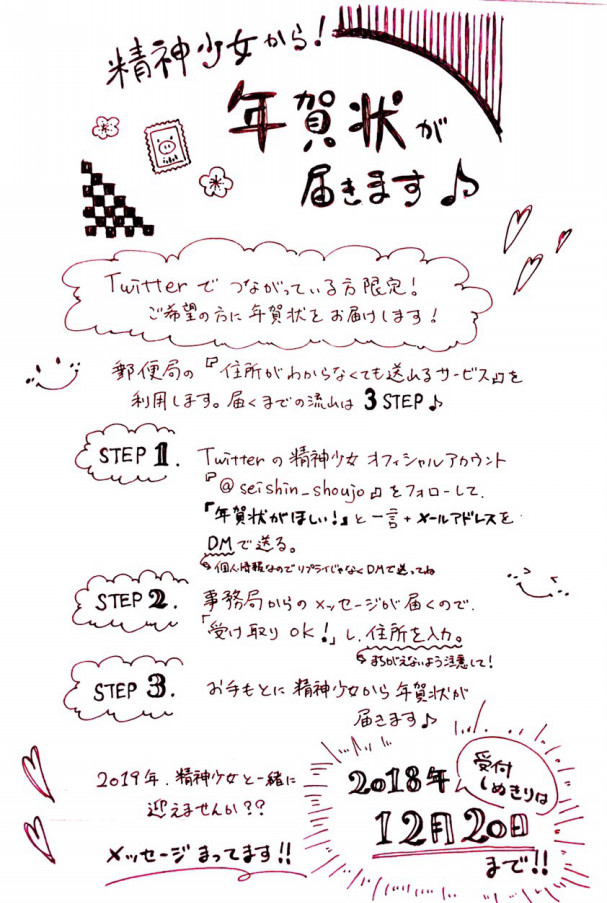 精神少女から!
年賀状が
届きます♪
Twitterで つながっている方限定!
ご希望の方に年賀状をお届けします!
郵便局の『住所がわからなくても送れるサービス』を
利用します。届くまでの流れは 3 STEP♪
STEP 1. Twitterの精神少女 オフィシャルアカウント
『@seishin_shoujo』をフォローして、
「年賀状がほしい!」と一言+メールアドレスを
DMで送る。
個人情報なのでリプライじゃなくDMで送ってね
STEP 2. 事務局からのメッセージが届くので、
「受け取りOK!」し、住所を入力。
まちがえないよう注意して!
STEP 3. お手もとに精神少女から年賀状が
届きます♪
2019年、精神少女と一緒に
迎えませんか??
メッセージまってます!!
受付
しめきりは
2018年
12月20日
まで!!